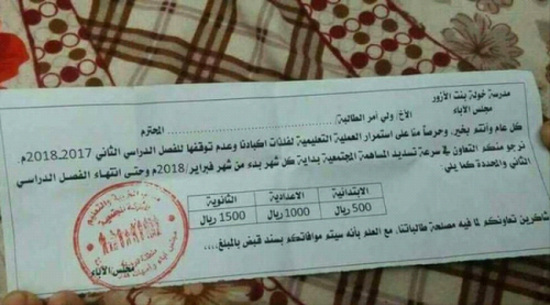 مدرسة خولة بنت الأزور
مجلس الآباء
الأخ/ ولي أمر الطالبة/ ........................ المحترم
كل عام وأنتم بخير، وحرصاً منا على استمرار العملية التعليمية لفلذات اكبادنا وعدم توقفها للفصل الدراسي الثاني 2017ـ2018م.
نرجو منكم التعاون في سرعة تسديد المساهمة المجتمعية بداية كل شهر بدء من شهر فبراير/2018م وحتى انتهاء الفصل الدراسي
الثاني والمحددة كما يلي.
الابتدائية الاعدادية الثانوية
500 ريال 1000 ريال 1500 ريال
شاكرين تعاونكم لما فيه مصلحة طالباتنا، مع العلم بأنه سيتم موافاتكم بسند قبض بالمبلغ....
مجلس الآباء